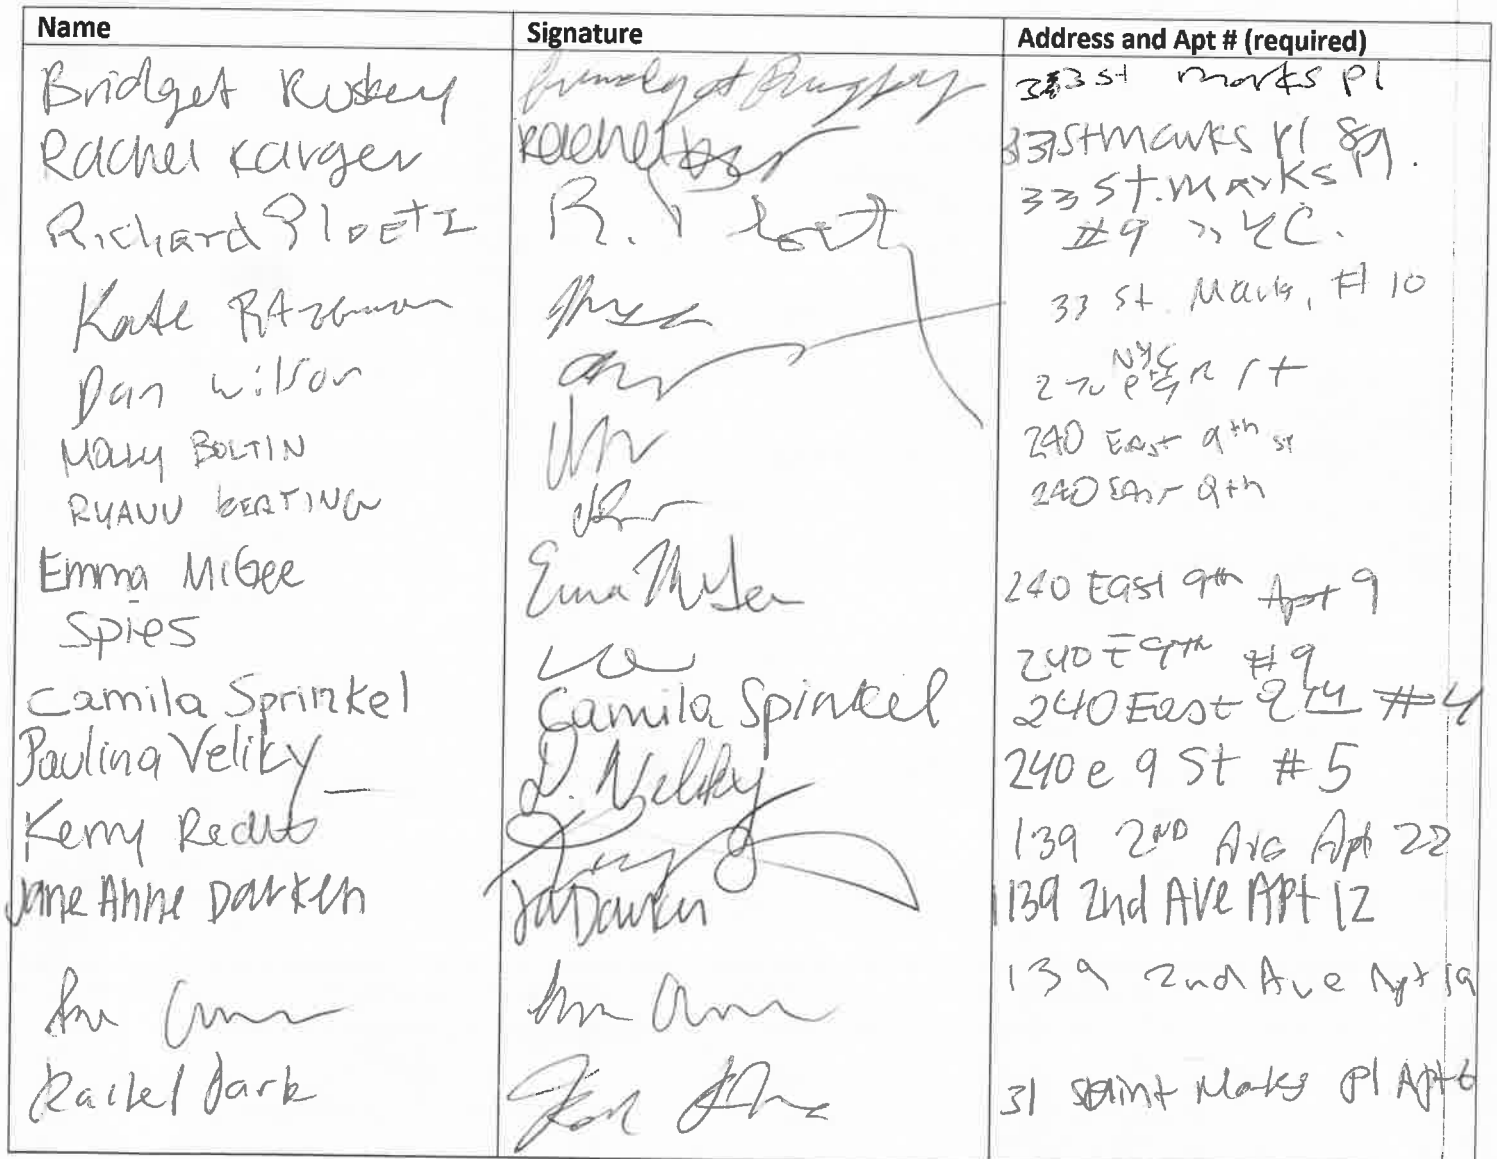 Name Signature Address and Apt # (required)
Bridget Ruskey 33 st marks pl
Rachel Karger Rachel 33 St marks pl
Richard Ploetz R. Ploetz 33 St. Marks Pl.
#9 NYC.
Kate 33 St. Marks, # 10
Dan Wilson NYC
Molly BOLTIN 240 East 9th st
RYANN KEATING 240 East 9th
Emma McGee Emma McGee 240 East 9th Apt 9
Spies 240 E 9th #9
Camila Sprinkel Camila Spinkel 240 East 9th #4
Paulina Veliky P. Veliky 240 e 9 St #5
Kerry Recht 139 2ND Ave Apt 22
Jane Anne Darken JA Darken 139 2nd AVe APt 12
139 2nd Ave Apt 19
Rachel Park 31 Saint Marks Pl Apt 6